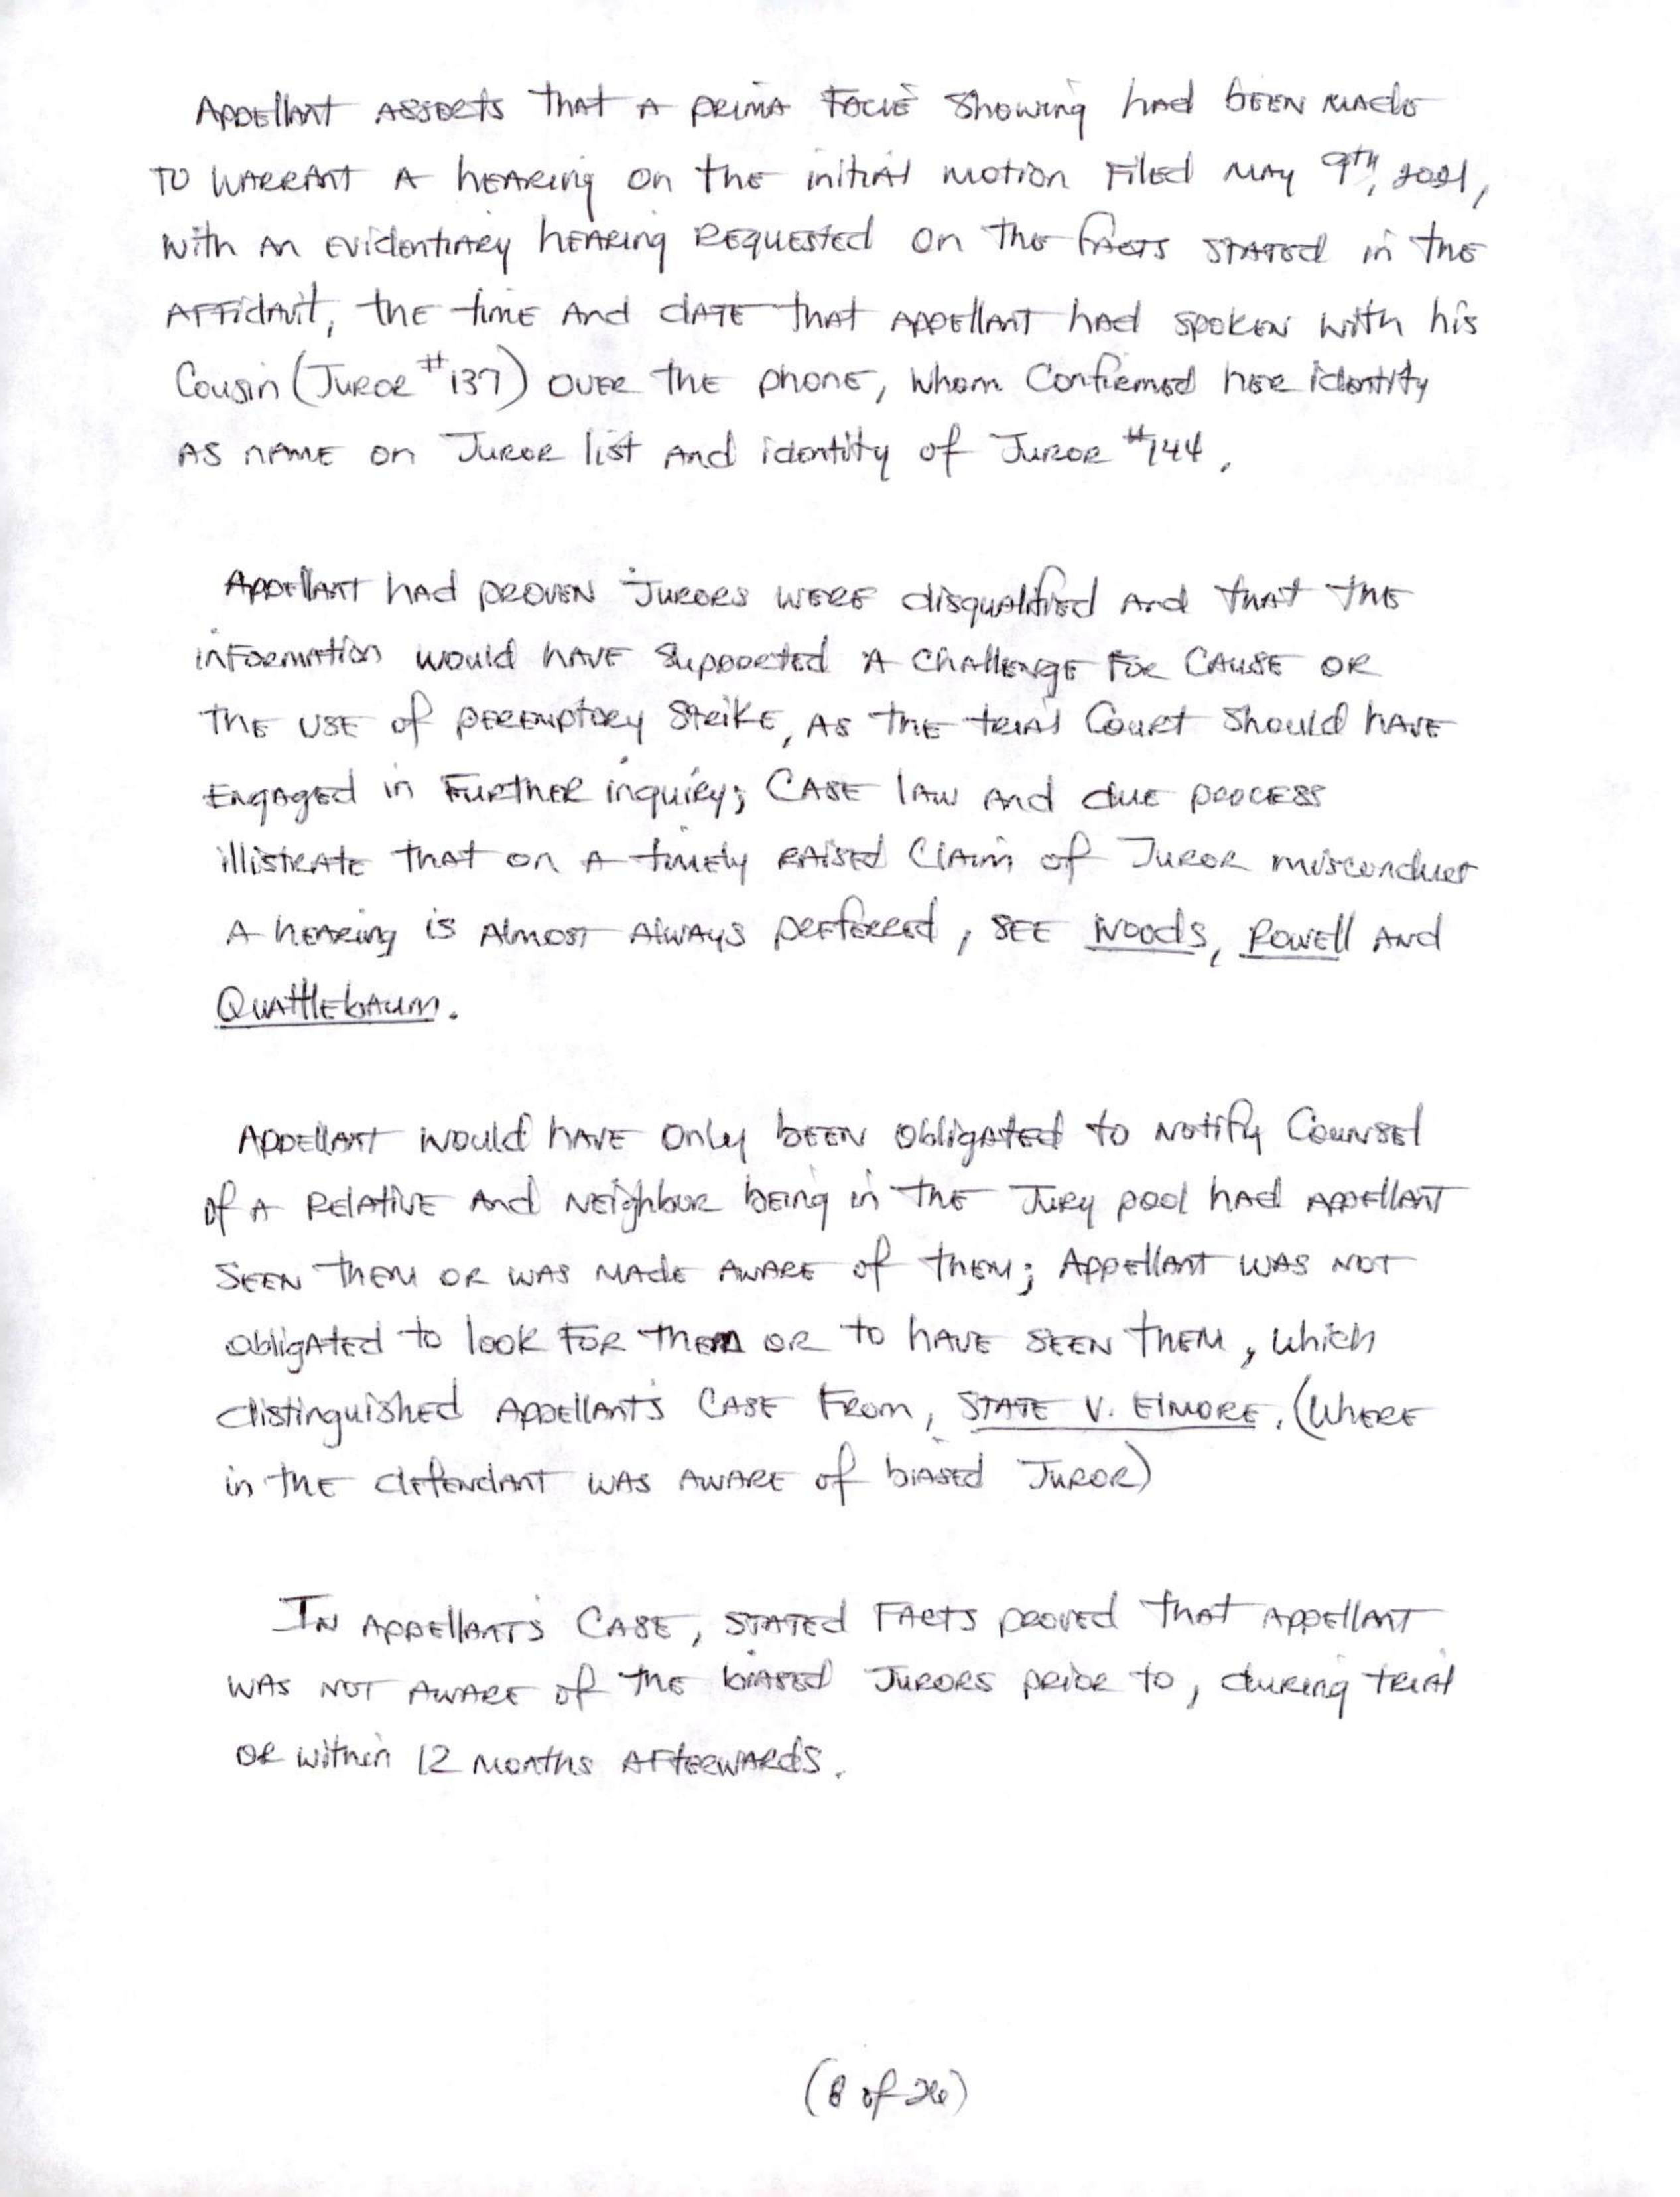 Appellant asserts that a prima facie showing had been made
to warrant a hearing on the initial motion filed May 9th, 2021,
with an evidentiary hearing requested on the facts stated in the
affidavit, the time and date that appellant had spoken with his
Cousin (Juror #137) over the phone, whom confirmed her identity
as name on Juror list and identity of Juror #144.
Appellant had proven Jurors were disqualified and that the
information would have supported a challenge for cause or
the use of peremptory strike, as the trial Court should have
engaged in further inquiry; Case law and due process
illistrate that on a timely raised claim of Juror misconduct
a hearing is almost always preferred, see Woods, Powell and
Quattlebaum.
Appellant would have only been obligated to notify Counsel
of a relative and neighbor being in the Jury pool had appellant
seen them or was made aware of them; Appellant was not
obligated to look for them or to have seen them, which
distinguished Appellant's case from, State v. Elmore. (Where
in the defendant was aware of biased Juror)
In Appellant's case, stated facts proved that appellant
was not aware of the biased Jurors prior to, during trial
or within 12 months afterwards.
(8 of 26)